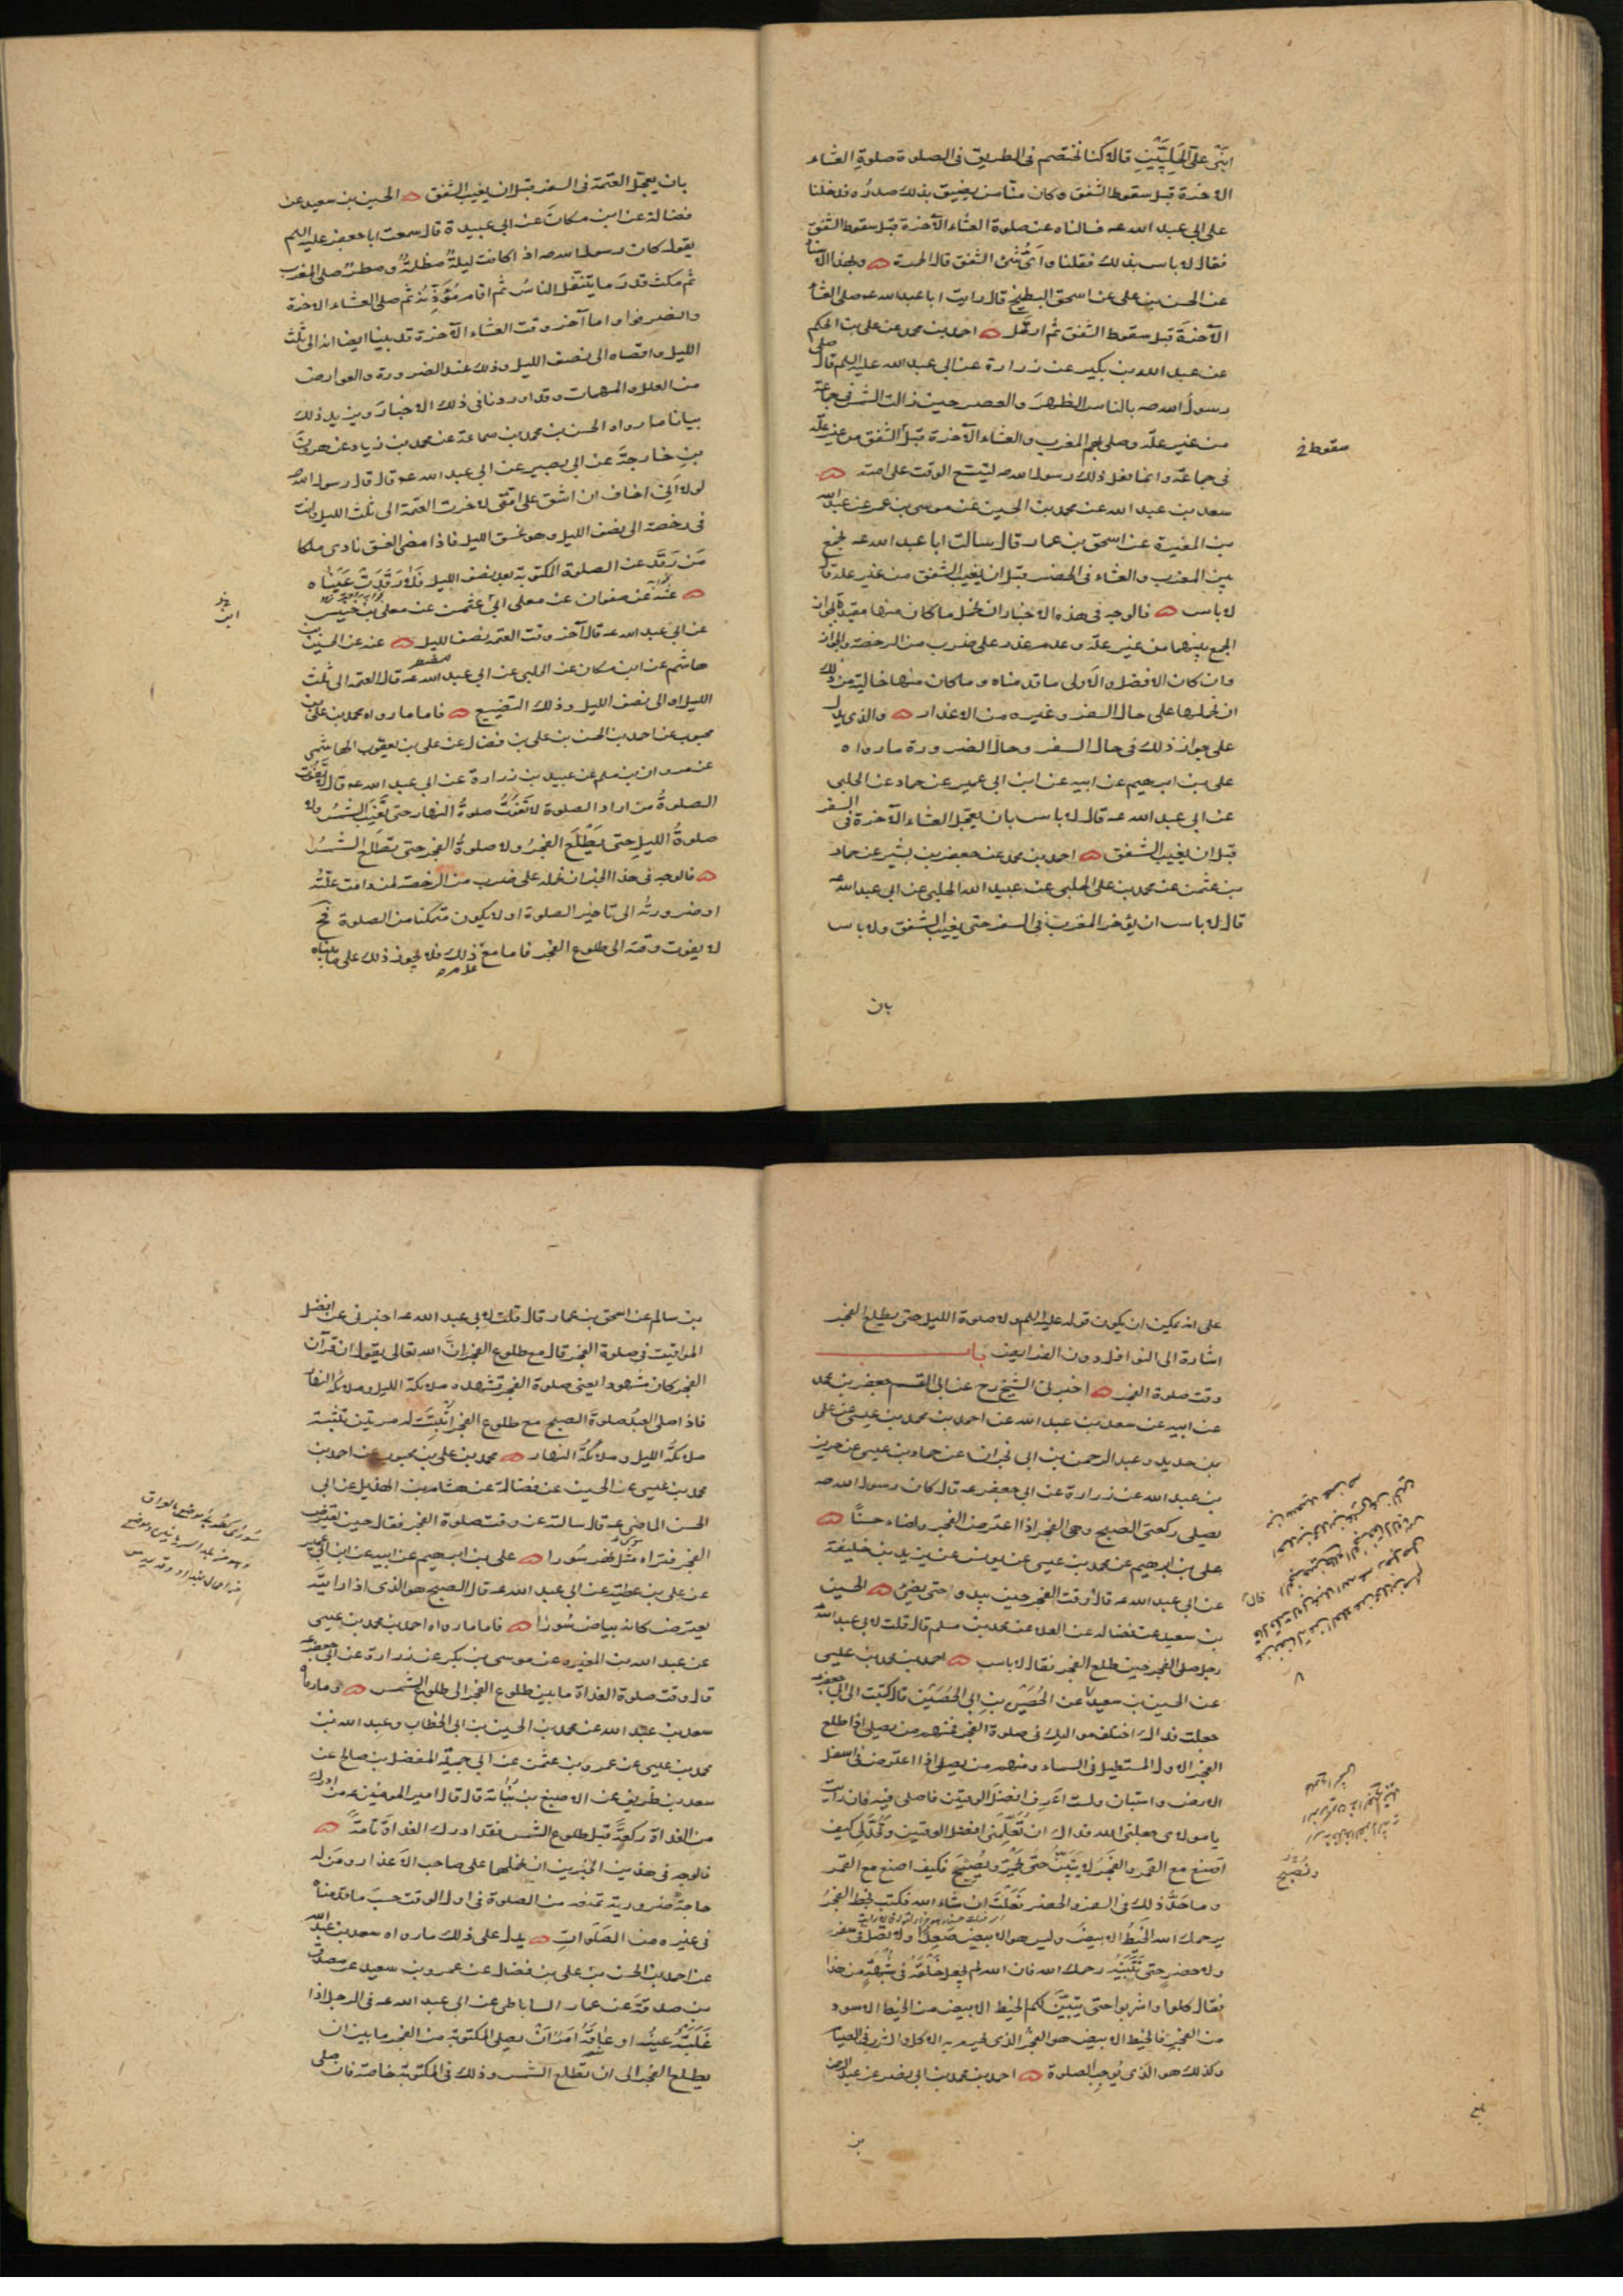 ابنى على الحلبيين قال كنا نختصم فى الطريق فى الصلوة صلوة العشاء
الاخرة قبل سقوط الشفق وكان منا من يضيق بذلك صدره فدخلنا
على ابى عبد الله عه فسالناه عن صلوة العشاء الآخرة قبل سقوط الشفق
فقال لا باس بذلك فقلنا واى شئ الشفق قال الحمرة وبهذا الاسناد
عن الحسن بن على عن اسحق البطيخى قال رايت ابا عبد الله عه صلى العشاء
الآخرة قبل سقوط الشفق ثم ارتحل احمد بن محمد عن على بن الحكم
عن عبد الله بن بكير عن زرارة عن ابى عبد الله عليه السلم قال صلى
رسول الله صه بالناس الظهر والعصر حين زالت الشمس فى جماعة
من غير علة وصلى بهم المغرب والعشاء الآخرة قبل الشفق من غير علة
سقوط خ
فى جماعة وانما فعل ذلك رسول الله صه ليتسع الوقت على امته
سعد بن عبد الله عن محمد بن الحسين عن موسى بن عمر عن عبد الله
بن المغيرة عن اسحق بن عمار قال سالت ابا عبد الله عه نجمع
بين المغرب والعشاء فى الحضر قبل ان يغيب الشفق من غير علة قال
لا باس فالوجه فى هذه الاخبار ان نحمل ما كان منها مقيدة بجواز
الجمع بينهما من غير علة وعدم عذر على ضرب من الرخصة والجواز
وان كان الافضل والاولى ما قدمناه وما كان منها خالية من ذلك
ان نحملها على حال السفر وغيره من الاعذار والذى يدل
على جواز ذلك فى حال السفر وحال الضرورة ما رواه
على بن ابرهيم عن ابيه عن ابن ابى عمير عن حماد عن الحلبى
عن ابى عبد الله عه قال لا باس بان يعجل العشاء الآخرة فى السفر
قبل ان يغيب الشفق احمد بن محمد عن جعفر بن بشير عن حماد
بن عثمن عن محمد بن على الحلبى عن عبيد الله الحلبى عن ابى عبد الله عه
قال لا باس ان يؤخر المغرب فى السفر حتى يغيب الشفق ولا باس
بان
بان يعجل العتمة فى السفر قبل ان يغيب الشفق الحسين بن سعيد عن
فضالة عن ابن مسكان عن ابى عبيدة قال سمعت ابا جعفر عليه السلم
يقول كان رسول الله صه اذا كانت ليلة مظلمة ومطر صلى المغرب
ثم مكث قدر ما يتنفل الناس ثم اقام مؤذنه ثم صلى العشاء الاخرة
وانصرفوا واما آخر وقت العشاء الآخرة قد بينا ايضا انه الى ثلث
الليل واقصاه الى نصف الليل وذلك عند الضرورة والعوارض
من العلل والمهمات وقد اوردنا فى ذلك الاخبار ويزيد ذلك
بيانا ما رواه الحسن بن محمد بن سماعة عن محمد بن زياد عن هرون
بن خارجة عن ابى بصير عن ابى عبد الله عه قال قال رسول الله صه
لولا انى اخاف ان اشق على امتى لاخرت العتمة الى ثلث الليل وانت
فى رخصة الى نصف الليل وهو غسق الليل فاذا مضى الغسق نادى ملكان
من رقد عن الصلوة المكتوبة بعد نصف الليل فلا رقدت عيناه
عنه عن صفوان عن معلى ابى عثمن عن معلى بن خنيس
خ ابن
عن ابى عبد الله عه قال آخر وقت العتمة نصف الليل عنه عن الحسين بن
هاشم عن ابن مسكان عن الحلبى عن ابى عبد الله عه قال العتمة الى ثلث
الليل او الى نصف الليل وذلك التضييع فاما ما رواه محمد بن على بن
محبوب عن احمد بن الحسن بن على بن فضال عن على بن يعقوب الهاشمى
عن مروان بن مسلم عن عبيد بن زرارة عن ابى عبد الله عه قال لا تفوت
الصلوة من اراد الصلوة لا تفوت صلوة النهار حتى تغيب الشمس ولا
صلوة الليل حتى يطلع الفجر ولا صلوة الفجر حتى تطلع الشمس
فالوجه فى هذا الخبر ان نحمله على ضرب من الرخصة لمن دامت علته
او ضرورته الى تاخير الصلوة او لا يكون متمكنا من الصلوة فح
لا يفوت وقته الى طلوع الفجر فاما مع عدم ذلك فلا يجوز ذلك على ما بيناه
على انه يمكن ان يكون قوله عليه السلم ولا صلوة الليل حتى يطلع الفجر
اشارة الى النوافل دون الفرايض باب
وقت صلوة الفجر اخبرنى الشيخ رح عن ابى القسم جعفر بن محمد
عن ابيه عن سعد بن عبد الله عن احمد بن محمد بن عيسى عن على
بن حديد وعبد الرحمن بن ابى نجران عن حماد بن عيسى عن حريز
بن عبد الله عن زرارة عن ابى جعفر عه قال كان رسول الله صه
يصلى ركعتى الصبح وهى الفجر اذا اعترض الفجر واضاء حسنا
على بن ابرهيم عن محمد بن عيسى عن يونس عن يزيد بن خليفة
عن ابى عبد الله عه قال وقت الفجر حين يبدو حتى يضئ الحسين
بن سعيد عن فضاله عن العلا عن محمد بن مسلم قال قلت لابى عبد الله عه
رجل صلى الفجر حين طلع الفجر فقال لا باس احمد بن محمد بن عيسى
عن الحسين بن سعيد عن الحصين بن ابى الحصين قال كتبت الى ابى جعفر عه
جعلت فداك اختلف مواليك فى صلوة الفجر فمنهم من يصلى اذا طلع
الفجر الاول المستطيل فى السماء ومنهم من يصلى اذا اعترض فى اسفل
الارض واستبان ولست اعرف افضل الوقتين فاصلى فيه فان رايت
يا مولاى جعلنى الله فداك ان تعلمنى افضل الوقتين وتحد لى كيف
اصنع مع القمر والفجر لا يتبين حتى يحمر ويصبح فكيف اصنع مع القمر
وتصبح
وما حد ذلك فى السفر والحضر فعلت ان شاء الله فكتب بخطه الفجر
يرحمك الله الخيط الابيض وليس هو الابيض صعدا ولا تصل فى سفر
ولا حضر حتى تتبينه رحمك الله فان الله لم يجعل خلقه فى شبهة من هذا
فقال كلوا واشربوا حتى يتبين لكم الخيط الابيض من الخيط الاسود
من الفجر فالخيط الابيض هو الفجر الذى يحرم به الاكل والشرب فى الصيام
وكذلك هو الذى يوجب الصلوة احمد بن محمد بن ابى نصر عن عبد الرحمن
بلغ
بن
بن سالم عن اسحق بن عمار قال قلت لابى عبد الله عه اخبرنى عن افضل
المواقيت فى صلوة الفجر قال مع طلوع الفجر ان الله تعالى يقول ان قرآن
الفجر كان مشهودا يعنى صلوة الفجر تشهده ملائكة الليل وملائكة النهار
فاذا صلى العبد صلوة الصبح مع طلوع الفجر اثبتت له مرتين تثبته
ملائكة الليل وملائكة النهار محمد بن على بن محبوب عن احمد بن
محمد بن عيسى عن الحسين عن فضالة عن هشام بن الهذيل عن ابى
الحسن الماضى عه قال سالته عن وقت صلوة الفجر فقال حين يعترض
الفجر فتراه مثل نهر سورا على بن ابرهيم عن ابيه عن ابن ابى عمير
عن على بن عطية عن ابى عبد الله عه قال الصبح هو الذى اذا رايته
يعترض كانه بياض سورا فاما ما رواه احمد بن محمد بن عيسى
عن عبد الله بن المغيره عن موسى بن بكر عن زرارة عن ابى جعفر عه
قال وقت صلوة الغداة ما بين طلوع الفجر الى طلوع الشمس وما رواه
سعد بن عبد الله عن محمد بن الحسين بن ابى الخطاب وعبد الله بن
محمد بن عيسى عن عمرو بن عثمن عن ابى جميلة المفضل بن صالح عن
سعد بن طريف عن الاصبغ بن نباتة قال قال امير المومنين عه من ادرك
من الغداة ركعة قبل طلوع الشمس فقد ادرك الغداة تامة
فالوجه فى هذين الخبرين ان نحملها على صاحب الاعذار ومن له
حاجة ضرورية تمنعه من الصلوة فى اول الوقت حسب ما قدمناه
فى غيره من الصلوات يدل على ذلك ما رواه سعد بن عبد الله
عن احمد بن الحسن بن على بن فضال عن عمرو بن سعيد عن مصدق
بن صدقة عن عمار الساباطى عن ابى عبد الله عه فى الرجل اذا
غلبته عينه او عاقه امر ان يصلى المكتوبة من الفجر ما بين ان
يطلع الفجر الى ان تطلع الشمس وذلك فى المكتوبة خاصة فان صلى